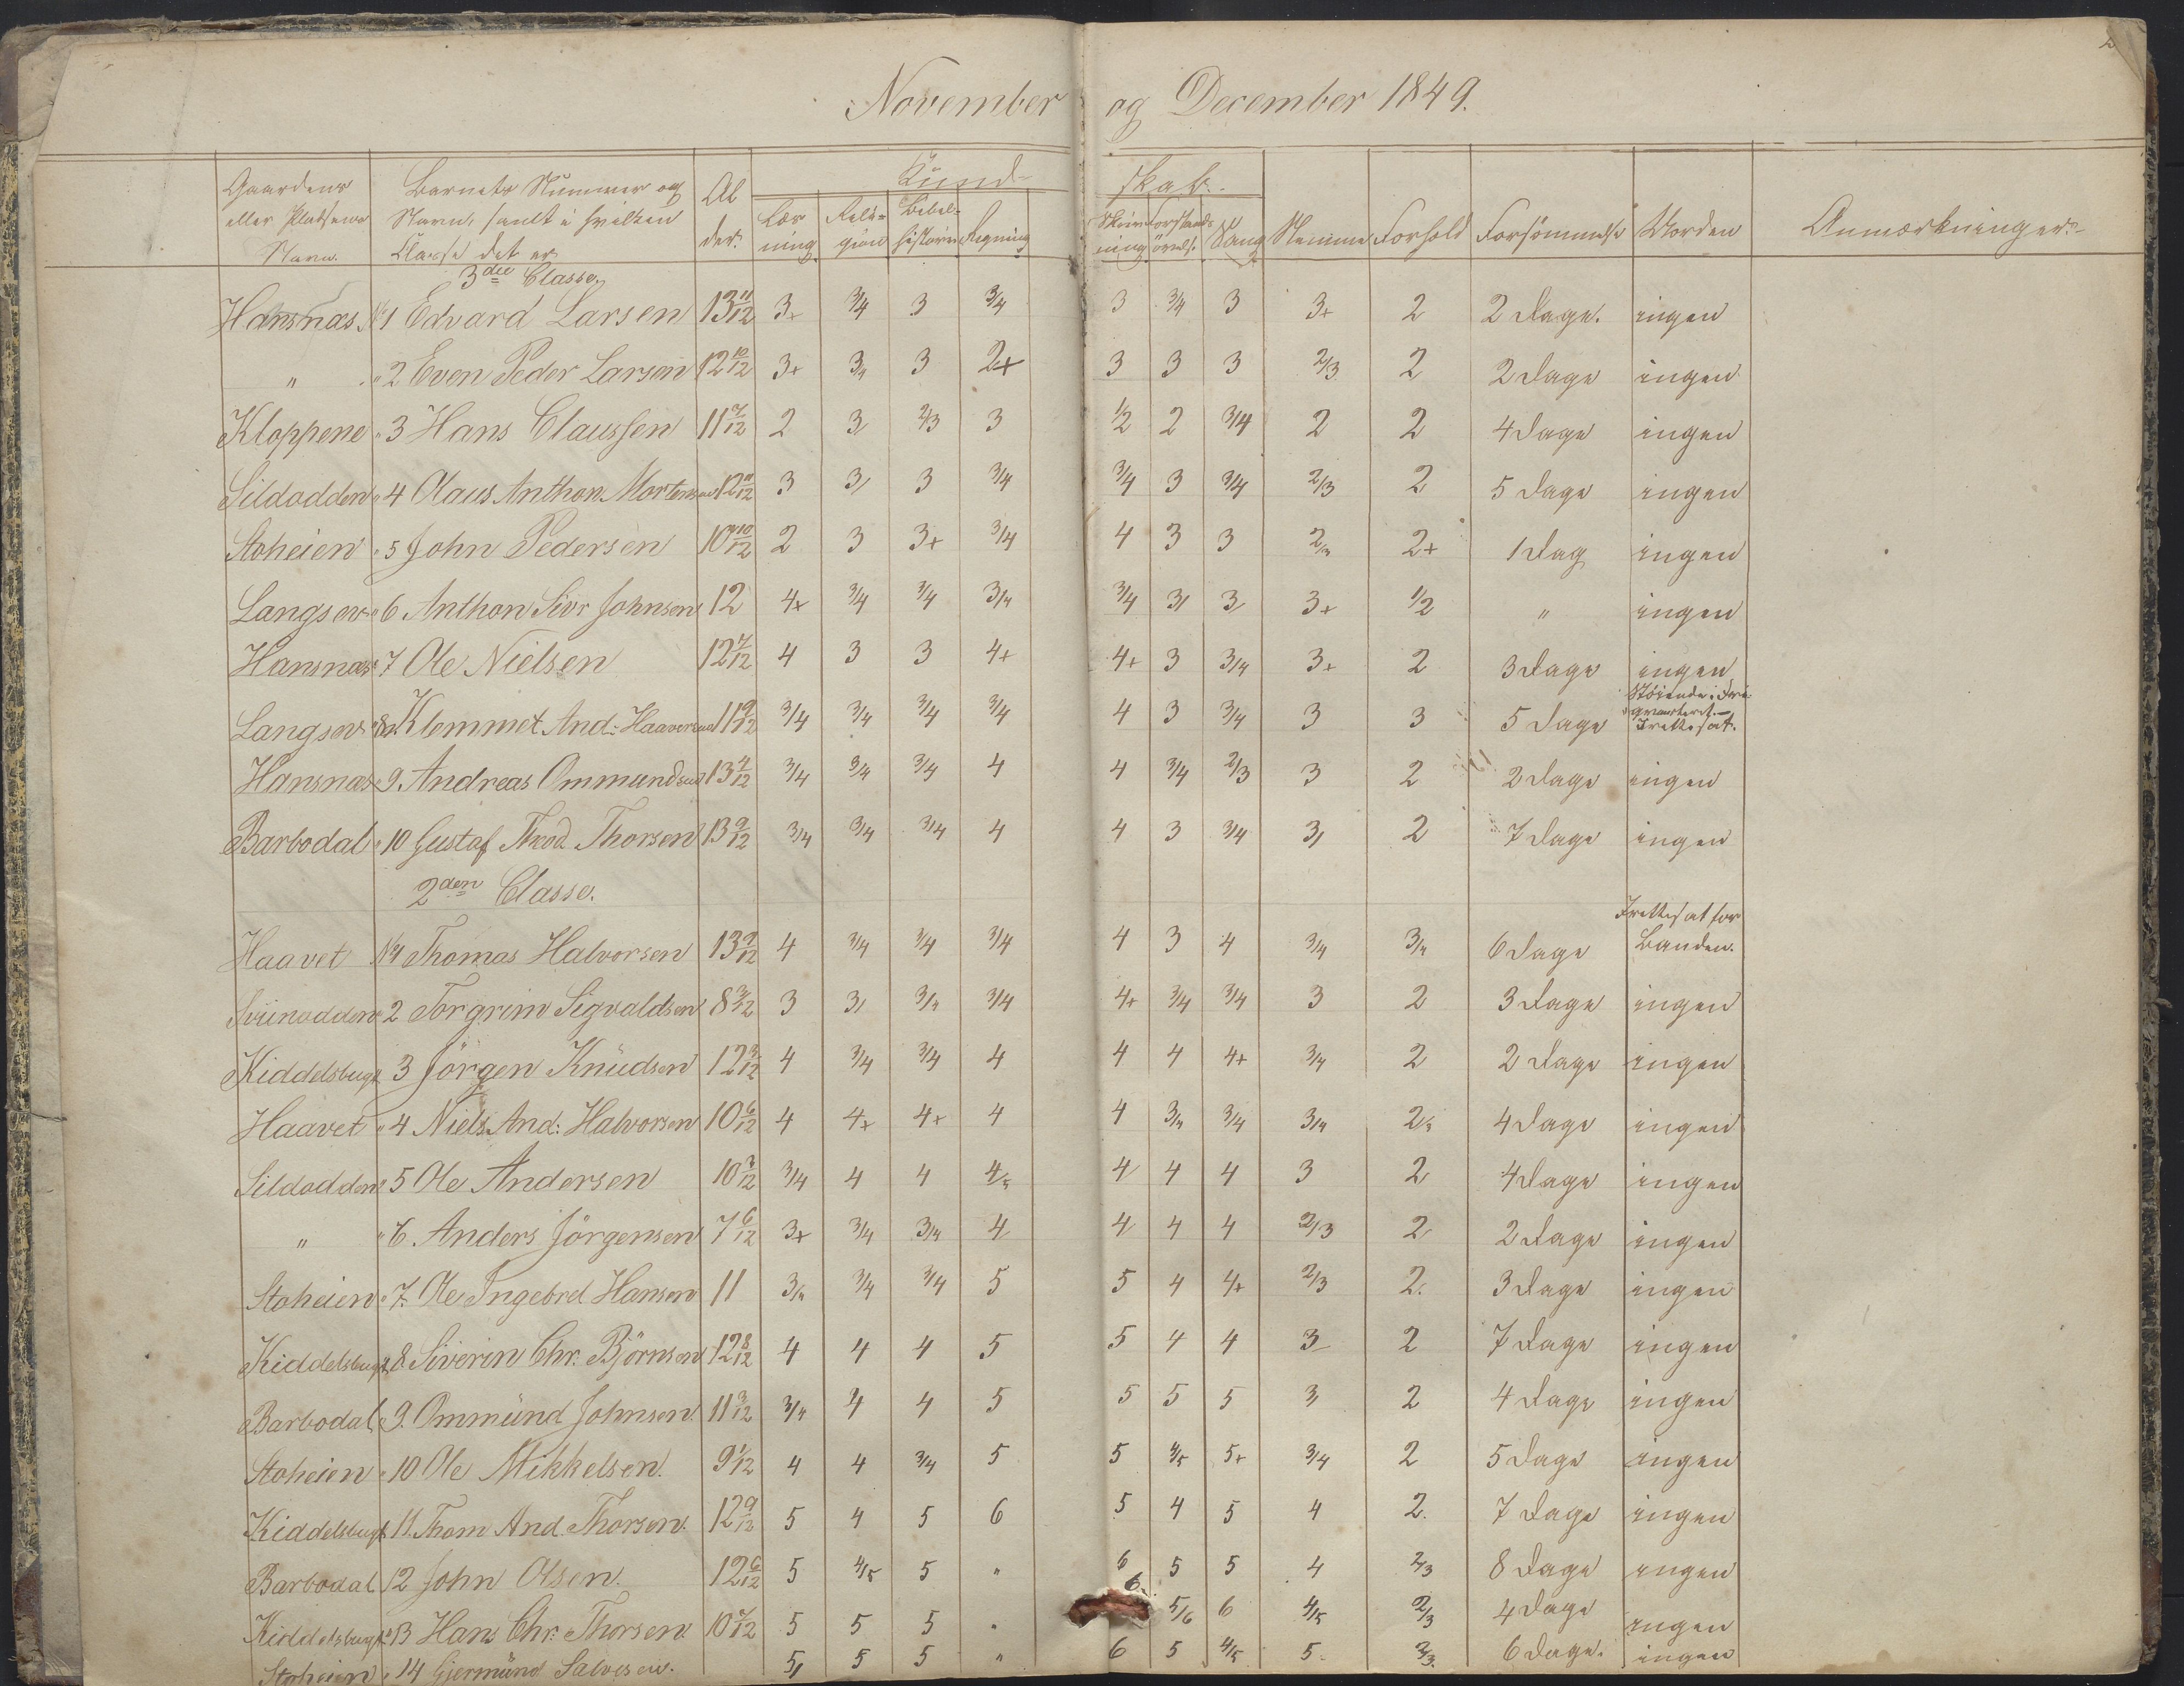 2
November og December 1849.
Gaardens eller Pladsens Navn. Barnets Nummer og Navn, samt i hvilken Classe det er Alder. Kundskab. Nemme Forhold Forsømmelse Uorden Anmærkninger.
Læsning Religion Bibelhistorie Regning Skrivning Forstandsövelse Sang
3die Classe.
Hansnæs No 1 Edvard Larsen 13 11/12 3+ 3/4 3 3/4 3 3/4 3 3+ 2 2 Dage. ingen
" " 2 Even Peder Larsen 12 10/12 3+ 3/4 3 2+ 3 3 3 2/3 2 2 Dage ingen
Kloppene " 3 Hans Claussen 11 7/12 2 3 2/3 3 1/2 2 3/4 2 2 4 Dage ingen
Sildodden " 4 Olaus Anthon Mortensen 12 11/12 3 3 3 3/4 3/4 3 3/4 2/3 2 5 Dage ingen
Stoheien " 5 John Pedersen 10 10/12 2 3 3+ 3/4 4 3 3 2/3 2+ 1 Dag ingen
Langsev " 6 Anthon Sivr Johnsen 12 4+ 3/4 3/4 3/4 3/4 3 3 3+ 1/2 " ingen
Hansnæs " 7 Ole Nielsen 12 7/12 4 3 3 4+ 4+ 3 3/4 3+ 2 3 Dage ingen
Langsev " 8 Klemmet And: Haavorsen 11 9/12 3/4 3/4 3/4 3/4 4 3 3/4 3 3 5 Dage Støiende i Friqvarteret. Irettesat.
Hansnæs " 9. Andreas Ommundsen 13 4/12 3/4 3/4 3/4 4 4 3/4 2/3 3 2 2 Dage ingen
Barbodal " 10 Gustaf Thod. Thorsen 13 9/12 3/4 3/4 3/4 4 4 3 3/4 3 2 7 Dage ingen
2den Classe.
Haavet No 1 Thomas Halvorsen 13 9/12 4 3/4 3/4 3/4 4 3 4 3/4 3/4 6 Dage Irettesat for Banden.
Sviinodden " 2 Torgrim Sigvaldsen 8 3/12 3 3 3/4 3/4 4+ 3/4 3/4 3 2 3 Dage ingen
Kiddelsbugt 3 Jörgen Knudsen 12 3/12 4 3/4 3/4 4 4 4 4+ 3/4 2 2 Dage ingen
Haavet " 4 Niels And: Halvorsen 10 6/12 4 4+ 4+ 4 4 3/4 3/4 3/4 2/3 4 Dage ingen
Sildodden " 5 Ole Andersen 10 3/12 3/4 4 4 4/5 4 4 4 3 2 4 Dage ingen
" " 6. Anders Jörgensen 7 6/12 3+ 3/4 3/4 4 4 4 4 2/3 2 2 Dage ingen
Stoheien " 7. Ole Ingebrel Hansen 11 3/4 3/4 3/4 5 5 4 4+ 2/3 2. 3 Dage ingen
Kiddelsbugt " 8 Siverin Chr. Björnsen 12 8/12 4 4 4 5 5 4 4 3 2 7 Dage ingen
Barbodal " 9. Ommünd Johnsen. 11 3/12 3/4 4 4 5 5 5 5 3 2 4 Dage ingen
Stoheien " 10 Ole Mikkelsen. 9 1/12 4 4 3/4 5 5 4/5 5+ 3/4 2 5 Dage ingen
Kiddelsbugt 11. Thom And. Thorsen. 12 9/12 5 4 5 6 5 4 5 4 2. 7 Dage ingen
Barbodal 12 John Olsen. 12 6/12 5 4/5 5 " 6 5 5 4 2/3 8 Dage ingen
Kiddelsbugt " 13 Hans Chr. Thorsen. 10 7/12 5 5 5 " 6. 5/6 6 4/5 2/3 4 Dage ingen
Stoheien " 14 Gjermünd Salvesen. 5 5 5 " 6 5 4/5 5. 2/3. 6 Dage. ingen